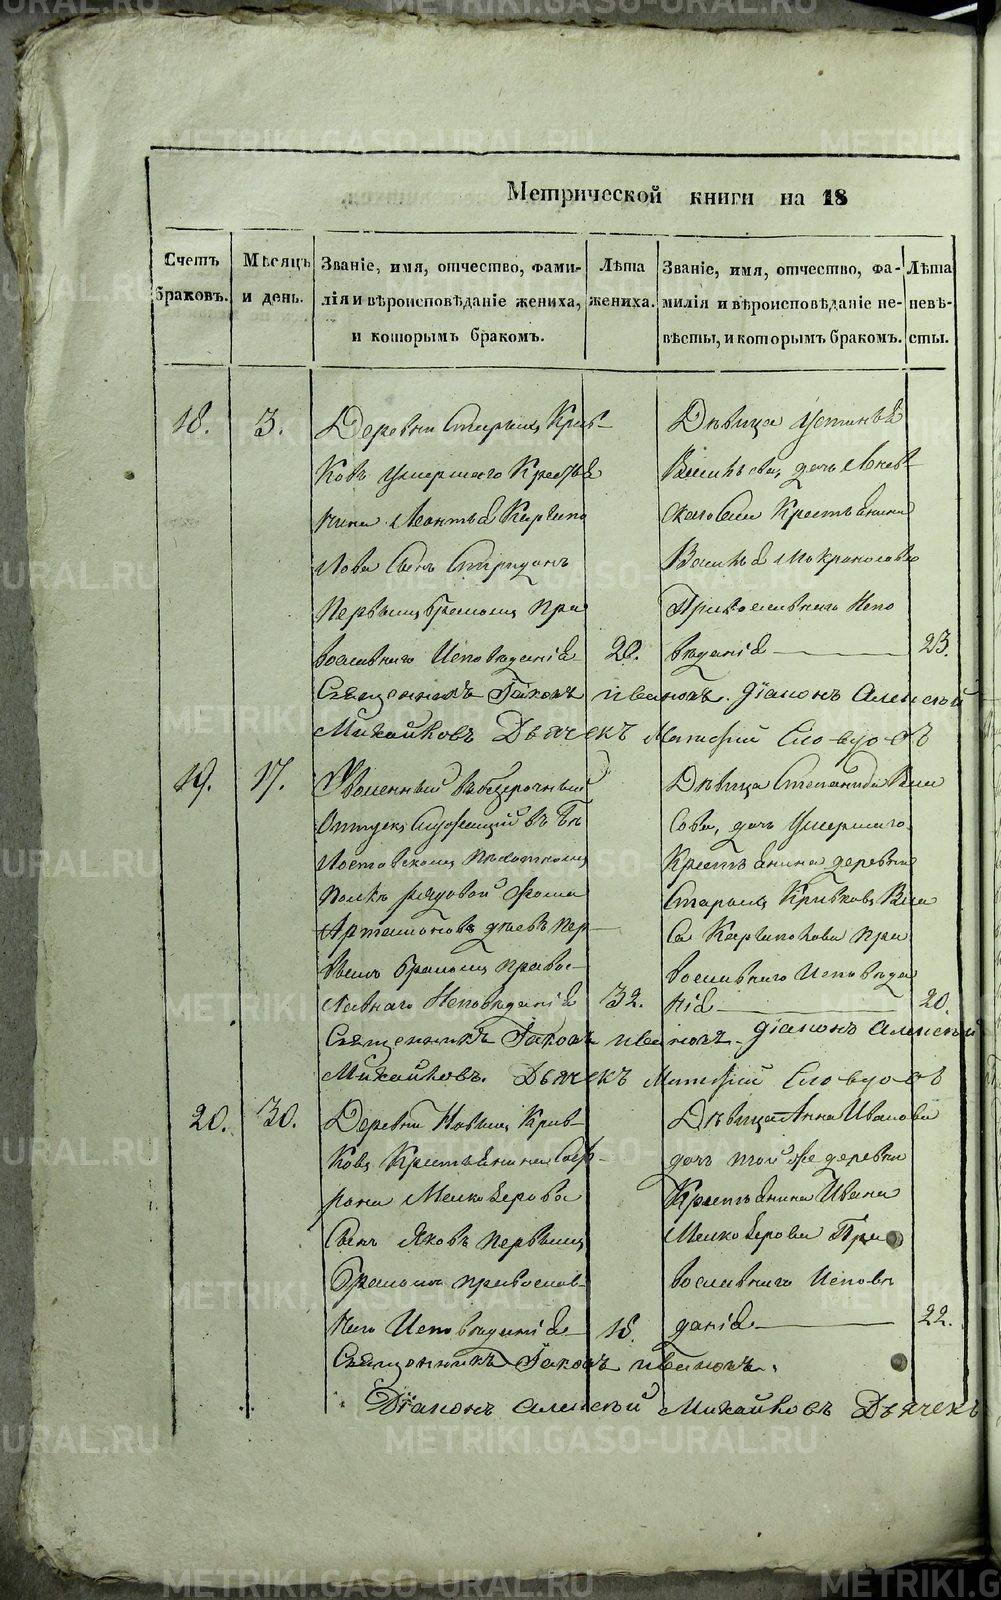 METRIKI.GASO-URAL.RU
Метрической книги на 18
Счетъ браковъ.
Мѣсяцъ и день.
Званіе, имя, отчество, фами-
лія и вѣроисповѣданіе жениха,
и которымъ бракомъ.
Лѣта жениха.
Званіе, имя, отчество, фа-
милія и вѣроисповѣданіе не-
вѣсты, и которымъ бракомъ.
Лѣта невѣ-
сты.
18. 3.
Деревни Старыхъ Крив-
ковъ умершаго Крестья
нина Леонтья Карпипо
лова Сынъ Спиридонъ
Первымъ бракомъ Пра
вославнаго Исповѣданія 20.
Дѣвица Устинья
Васильева, дочь
скаго Села Крестьянина
Василья
Православнаго Испо
вѣданія 23.
Священникъ Іаковъ Ивановъ. Діаконъ Алексѣй
Михайловъ Дьячекъ Матфій Словцовъ
19. 17.
Уволенный въ безсрочный
Отпускъ Служащій въ Бѣ
лостокскомъ Пѣхотномъ
Полку рядовой Фома
Артамоновъ пер
вымъ бракомъ Правос-
лавнаго Исповѣданія 32.
Дѣвица Степанида Вла
сова, дочь Умершаго
Крестьянина деревни
Старыхъ Кривковъ Вла
са Пра
вославнаго Исповѣда
нія 20.
Священникъ Іаковъ Ивановъ. Діаконъ Алексѣй
Михайловъ. Дьячекъ Матфій Словцовъ
20. 30.
Деревни Новыхъ Крив-
ковъ Крестьянина Соф-
рона Мелкозерова
Сынъ Яковъ первымъ
бракомъ православ-
наго Исповѣданія 18.
Дѣвица Анна Иванова
дочь той же деревни
Крестьянина Ивана
Мелкозерова Пра
вославнаго Исповѣ
данія 22.
Священникъ Іаковъ Ивановъ.
Діаконъ Алексѣй Михайловъ Дьячекъ